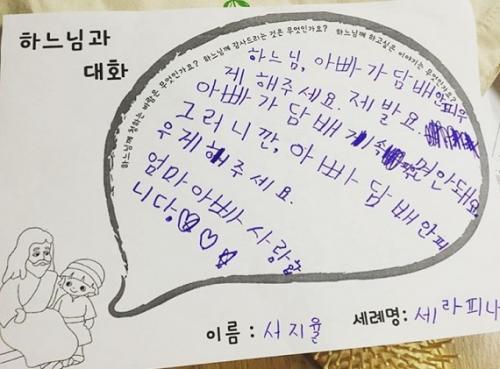 하느님과
대화
하느님께 청하는 바람은 무엇인가요? 하느님께 감사드리는 것은 무엇인가요? 하느님께 하고싶은 이야기는 무엇인가요?
하느님, 아빠가 담배안피우
게 해주세요. 제발요.
아빠가 담배 계속 피면안돼요
그러니깐, 아빠 담배안피
우게해주세요.
엄마아빠사랑합
니다!
이름 : 서지율
세례명: 세라피나